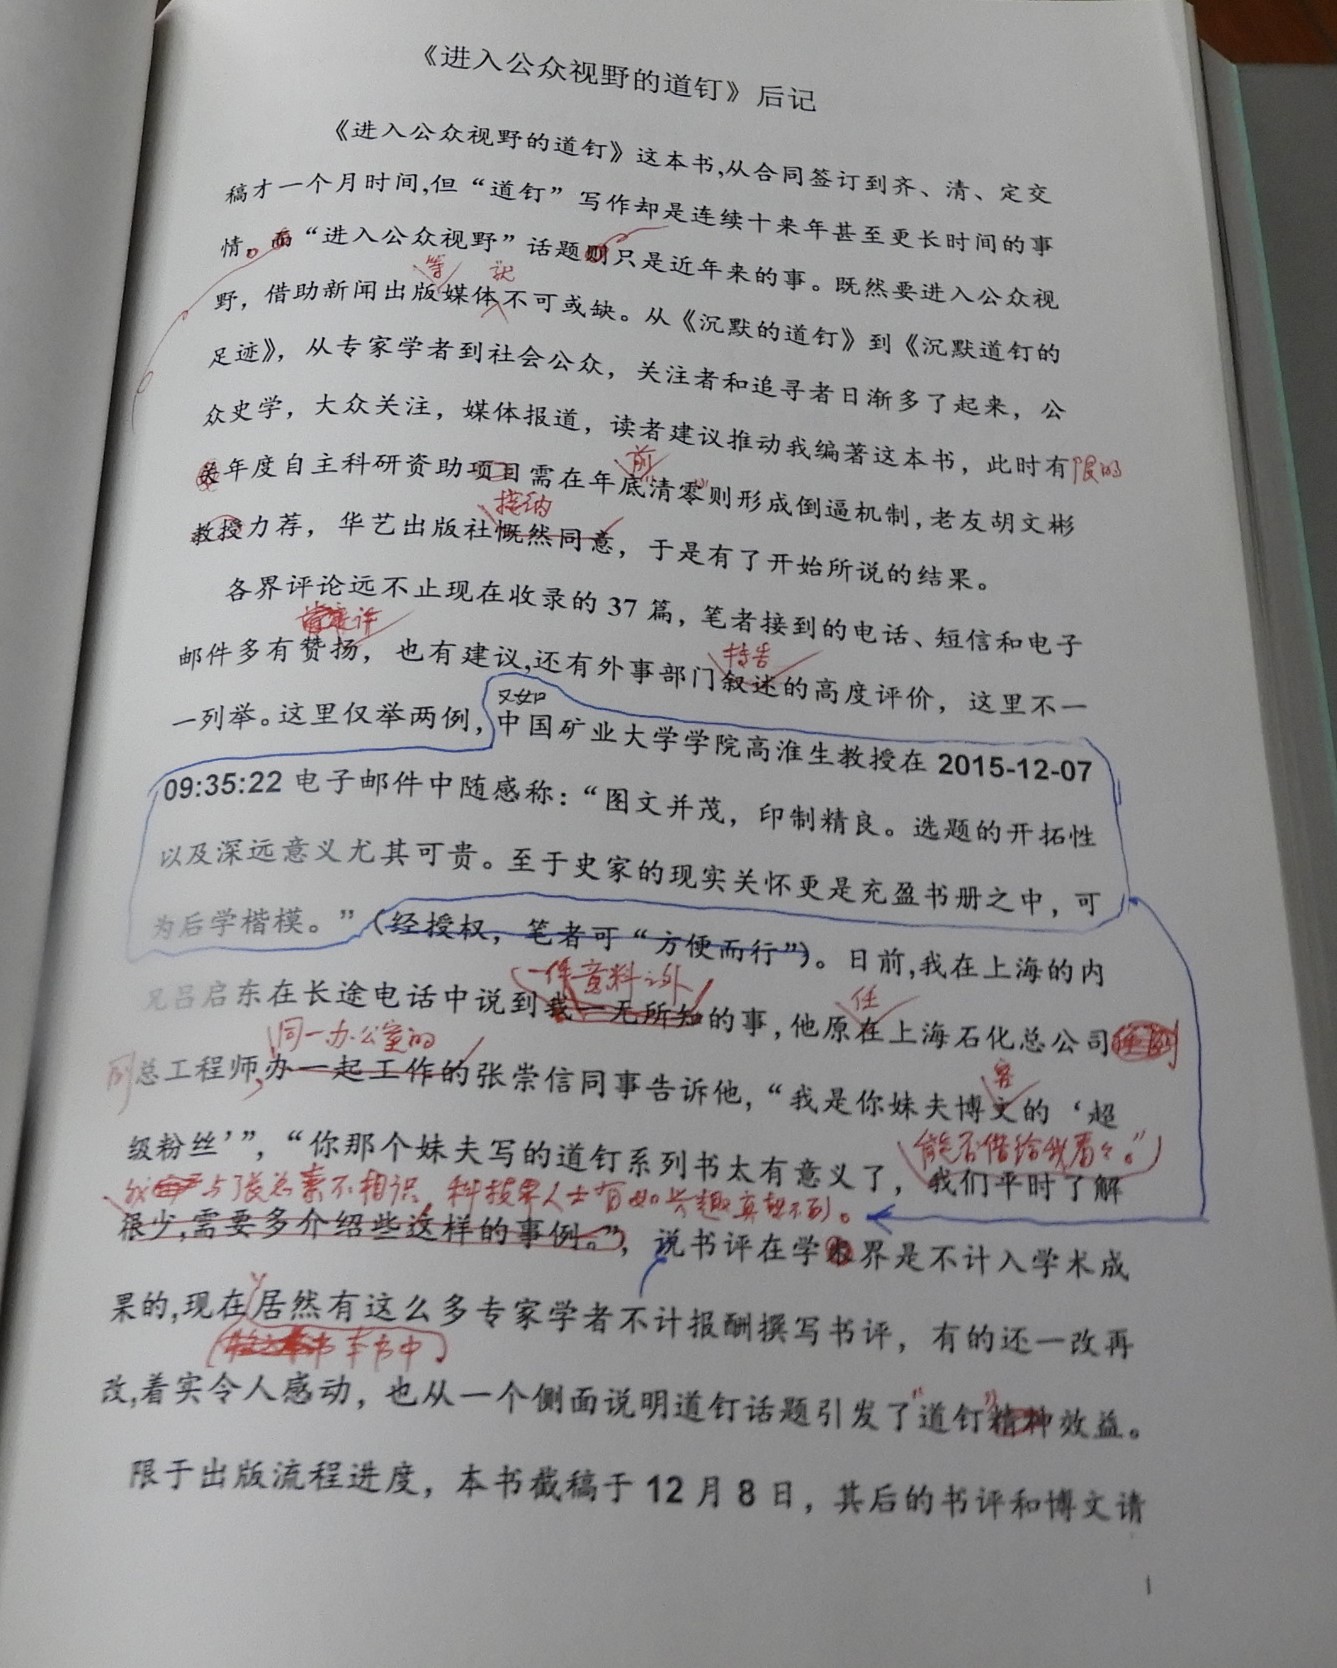 《进入公众视野的道钉》后记
《进入公众视野的道钉》这本书,从合同签订到齐、清、定交
稿才一个月时间,但“道钉”写作却是连续十来年甚至更长时间的事
情。而“进入公众视野”话题则只是近年来的事。既然要进入公众视
等 就
野，借助新闻出版媒体不可或缺。从《沉默的道钉》到《沉默道钉的
足迹》，从专家学者到社会公众，关注者和追寻者日渐多了起来，公
众史学，大众关注，媒体报道，读者建议推动我编著这本书，此时有限的
前
年度自主科研资助项目需在年底清零则形成倒逼机制,老友胡文彬
接纳
教授力荐，华艺出版社慨然同意，于是有了开始所说的结果。
各界评论远不止现在收录的 37 篇，笔者接到的电话、短信和电子
许
邮件多有赞扬，也有建议,还有外事部门叙述的高度评价，这里不一
转告
又如
一列举。这里仅举两例,中国矿业大学学院高淮生教授在 2015-12-07
09:35:22 电子邮件中随感称：“图文并茂，印制精良。选题的开拓性
以及深远意义尤其可贵。至于史家的现实关怀更是充盈书册之中，可
为后学楷模。”（经授权，笔者可“方便而行”）。日前,我在上海的内
一件意料之外
任
兄吕启东在长途电话中说到我一无所知的事,他原在上海石化总公司
同一办公室的
总工程师,办一起工作的张崇信同事告诉他,“我是你妹夫博文的‘超
客
级粉丝’”,“你那个妹夫写的道钉系列书太有意义了，我们平时了解
能否借给我看看。”
我与张总素不相识，科技界人士有如此兴趣真想不到。
很少,需要多介绍些这样的事例。”，说书评在学术界是不计入学术成
果的,现在居然有这么多专家学者不计报酬撰写书评，有的还一改再
本书中
改,着实令人感动，也从一个侧面说明道钉话题引发了“道钉”精神效益。
限于出版流程进度，本书截稿于 12 月 8 日，其后的书评和博文请
1